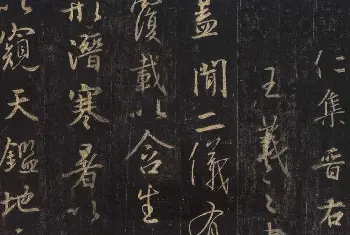 仁集晉右
王羲之
蓋聞二儀有
覆載以含生
形潛寒暑以
以窺天鑑地